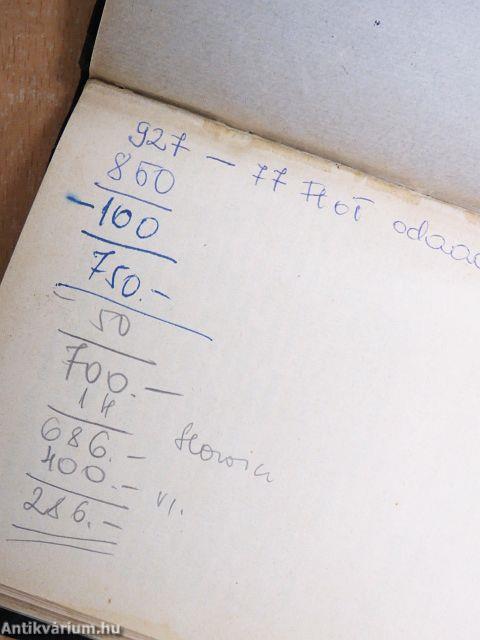 927 — 77 Ftot odaad
850
-100
750.-
- 50
700.—
14
686.-
400.- VI.
286.-
Antikvárium.hu